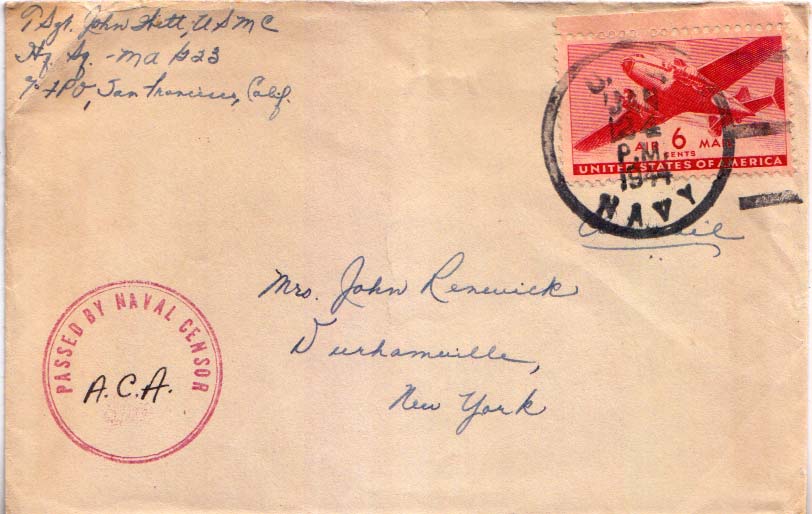 T Sgt. John Hett, USMC
Hq. Sq. - MAG 23
% FPO, San Francisco, Calif.
U.S.
P.M.
1944
NAVY
AIR 6 MAIL
CENTS
UNITED STATES OF AMERICA
Air Mail
Mrs. John Renwick
Durhamville,
New York
PASSED BY NAVAL CENSOR
A.C.A.